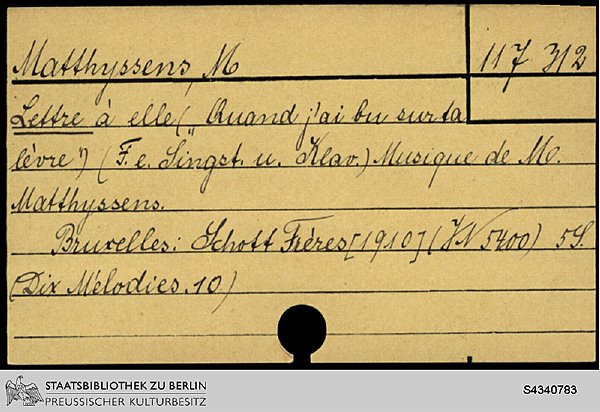 Matthyssens, M 117 312
Lettre à elle („Quand j'ai bu sur ta
lèvre") (F. e. Singst. u. Klav.) Musique de M.
Matthyssens.
Bruxelles: Schott Frères [1910] (VN 5400) 5S.
(Dix Mélodies. 10)
STAATSBIBLIOTHEK ZU BERLIN
PREUSSISCHER KULTURBESITZ
S4340783